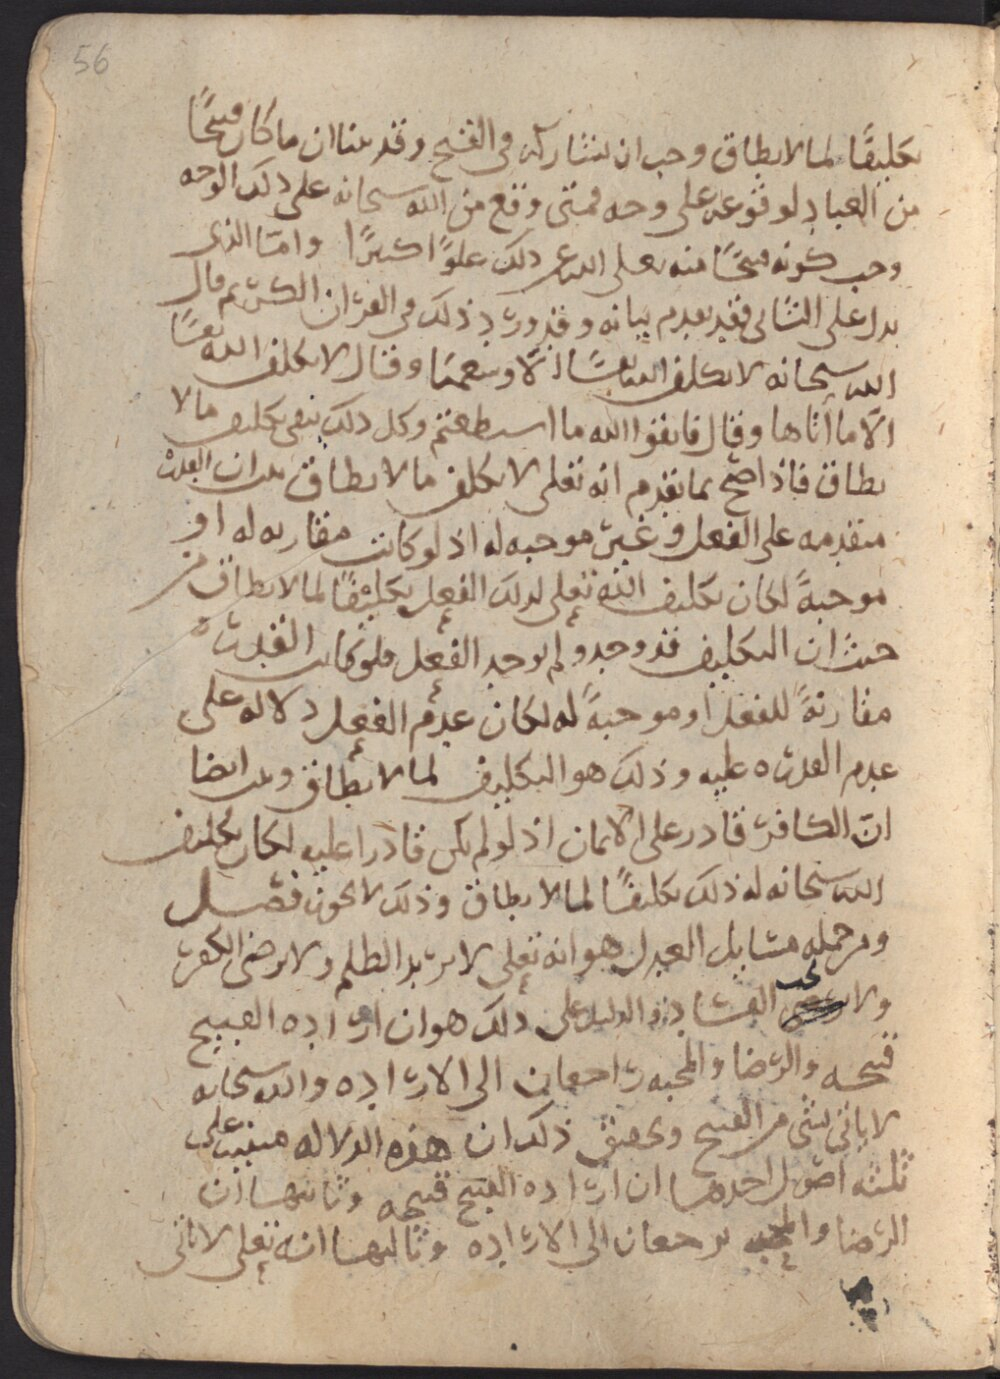 56
تكليفًا لما لا يطاق وجب ان يشاركه في القبح وقد بينا ان ما كان قبيحًا
من العباد لوقوعه على وجه فمتى وقع من الله سبحانه على ذلك الوجه
وجب كونه قبيحًا منه تعلى الله عن ذلك علوًّا كبيرًا واما الذى
يدل على الثاني فقد تقدم بيانه وقد ورد ذلك في القرآن الكريم قال
الله سبحانه لا يكلف الله نفسًا الّا وسعها وقال لا يكلف الله نفسًا
الّا ما آتاها وقال فاتقوا الله ما استطعتم وكل ذلك ينفى تكليف ما لا
يطاق فاذا صح بما تقدم انه تعلى لا يكلف ما لا يطاق ثبت ان القدرة
متقدمه على الفعل وغير موجبه له اذ لو كانت مقارنه له او
موجبةً لكان تكليف الله تعلى لذلك الفعل تكليفًا لما لا يطاق من
حيث ان التكليف قد وجد ولم يوجد الفعل فلو كانت القدرة
مقارنةً للفعل او موجبةً له لكان عدم الفعل دلاله على
عدم القدرة عليه وذلك هو التكليف لما لا يطاق وثبت ايضا
انّ الكافر قادر على الايمان اذ لو لم يكن قادرا عليه لكان تكليف
الله سبحانه له ذلك تكليفًا لما لا يطاق وذلك لا يجوز فصل
ومن جمله مسايل العدل هو انه تعلى لا يريد الظلم ولا يرضى الكفر
ولا يحب الفساد والدليل على ذلك هو ان اراده القبيح
قبيحه والرضا والمحبه راجعان الى الاراده والله سبحانه
لا ياتى بشى من القبيح وتحقيق ذلك ان هذه الدلاله مبنيه على
ثلثه اصول احدها ان اراده القبيح قبيحه وثانيها ان
الرضا والمحبه يرجعان الى الاراده وثالثها انه تعلى لا ياتى